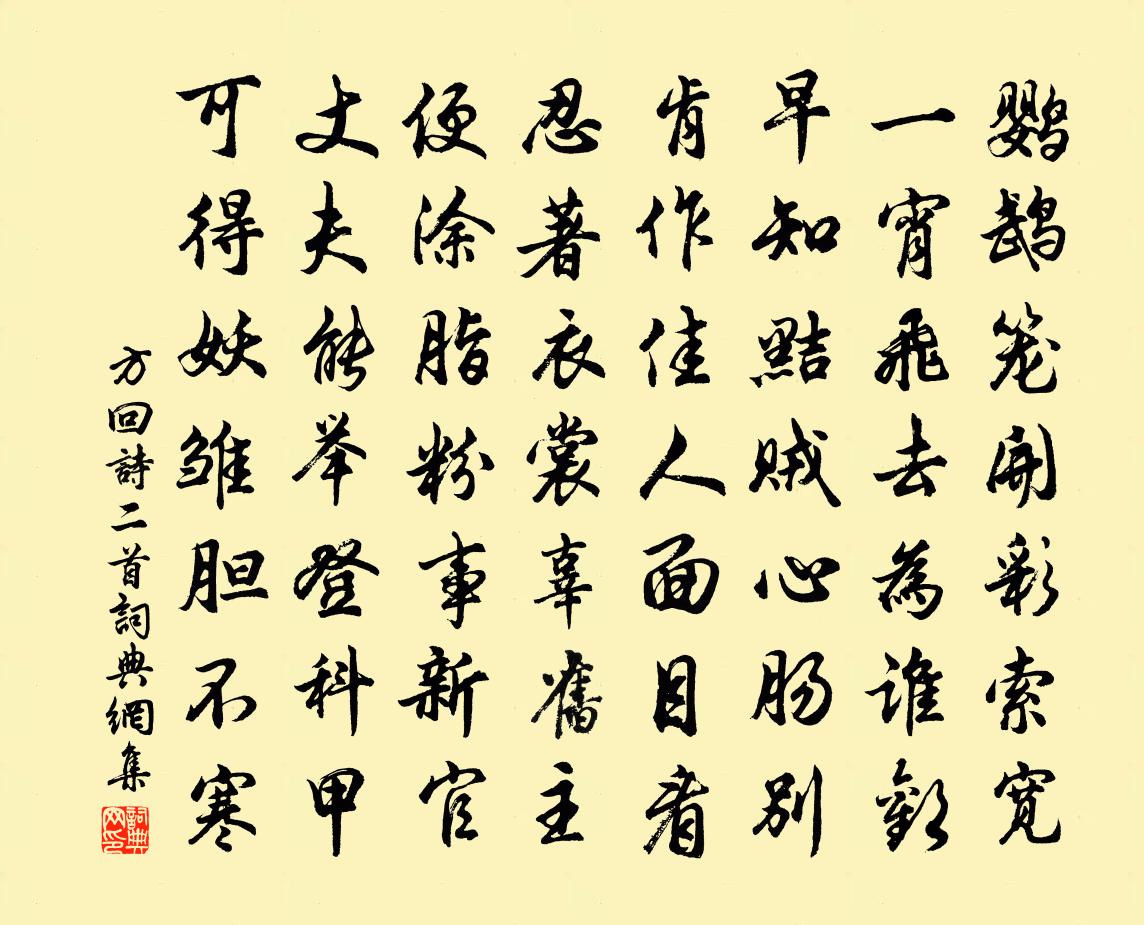 鸚鵡笼開彩索寬
一宵飛去為誰歡
早知黠贼心肠别
肯作佳人面目看
忍著衣裳辜舊主
便涂脂粉事新官
丈夫能举登科甲
可得妖雏胆不寒
方回詩二首詞典網集
詞典网印